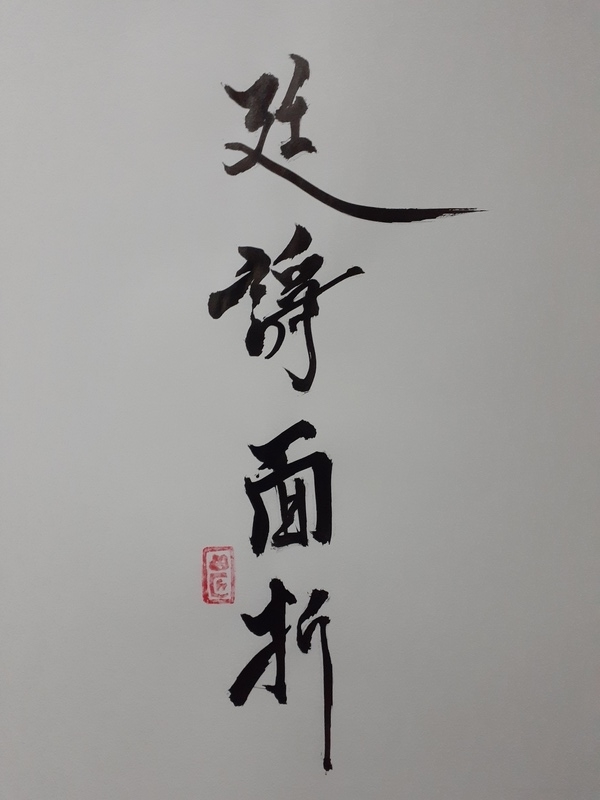 廷諍面折